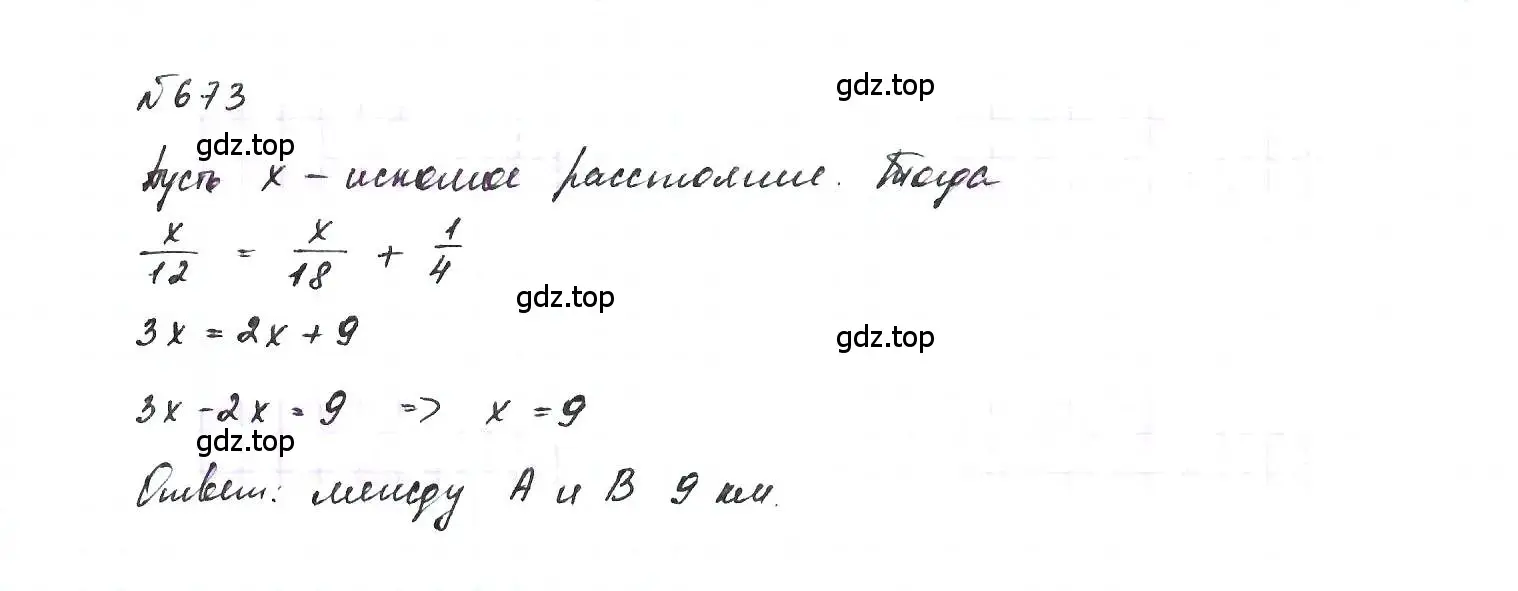 №673
gdz.top
gdz.top
Пусть x – искомое расстояние. Тогда
x/12 = x/18 + 1/4
gdz.top
3x = 2x + 9
gdz.top
3x - 2x = 9 => x = 9
gdz.top
Ответ: между А и В 9 км.